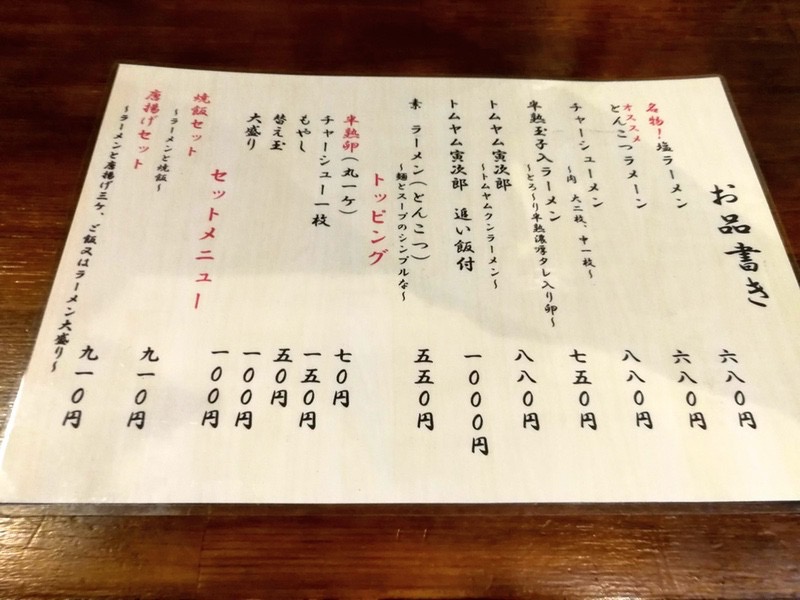 お品書き
名物！塩ラーメン 六八〇円
オススメ
とんこつラーメン 六八〇円
チャーシューメン 八八〇円
～肉 大二枚、中一枚～
半熟玉子入ラーメン 七五〇円
～とろ～り半熟濃厚タレ入り卵～
トムヤム寅次郎 八八〇円
～トムヤムクンラーメン～
トムヤム寅次郎 追い飯付 一〇〇〇円
素 ラーメン（とんこつ） 五五〇円
～麺とスープのシンプルな～
トッピング
半熟卵（丸一ケ） 七〇円
チャーシュー一枚 一五〇円
もやし 五〇円
替え玉 一〇〇円
大盛り 一〇〇円
セットメニュー
焼飯セット 九一〇円
～ラーメンと焼飯～
唐揚げセット 九一〇円
～ラーメンと唐揚げ三ケ、ご飯又はラーメン大盛り～